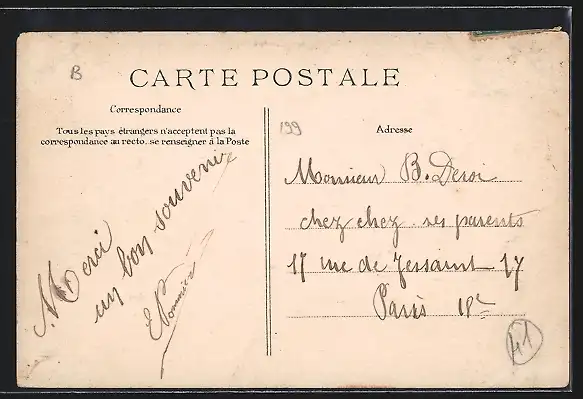 B
CARTE POSTALE
Correspondance
Tous les pays étrangers n'acceptent pas la
correspondance au recto, se renseigner à la Poste
Merci
un bon souvenir
199
Adresse
Monsieur B. Deroi
chez chez ses parents
17 rue de Jessaint 17
Paris 18e
41